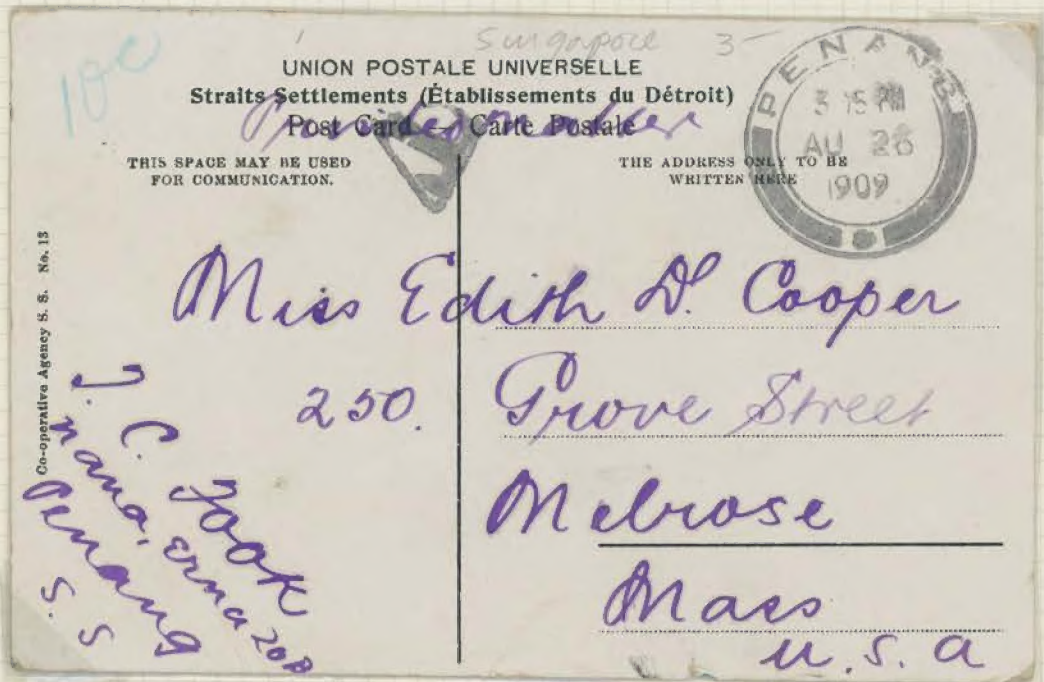 10c
Singapore 3-
UNION POSTALE UNIVERSELLE
Straits Settlements (Établissements du Détroit)
Post Card — Carte Postale
Printed matter
THIS SPACE MAY BE USED
FOR COMMUNICATION.
THE ADDRESS ONLY TO BE
WRITTEN HERE
PENANG
3 15 PM
AU 26
1909
Co-operative Agency S. S. No. 13
Miss Edith D. Cooper
250. Grove Street
Melrose
Mass
U.S.A
T. C. Fook
Penang
S. S